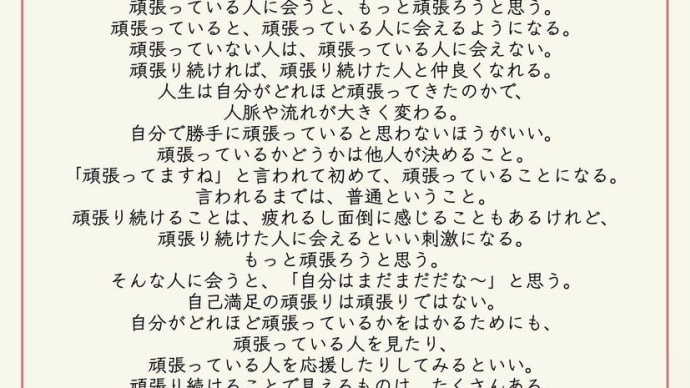 頑張っている人に会うと、もっと頑張ろうと思う。
頑張っていると、頑張っている人に会えるようになる。
頑張っていない人は、頑張っている人に会えない。
頑張り続ければ、頑張り続けた人と仲良くなれる。
人生は自分がどれほど頑張ってきたのかで、
人脈や流れが大きく変わる。
自分で勝手に頑張っていると思わないほうがいい。
頑張っているかどうかは他人が決めること。
「頑張ってますね」と言われて初めて、頑張っていることになる。
言われるまでは、普通ということ。
頑張り続けることは、疲れるし面倒に感じることもあるけれど、
頑張り続けた人に会えるといい刺激になる。
もっと頑張ろうと思う。
そんな人に会うと、「自分はまだまだだな〜」と思う。
自己満足の頑張りは頑張りではない。
自分がどれほど頑張っているかをはかるためにも、
頑張っている人を見たり、
頑張っている人を応援したりしてみるといい。
頑張り続けることで見えるものは、たくさんある